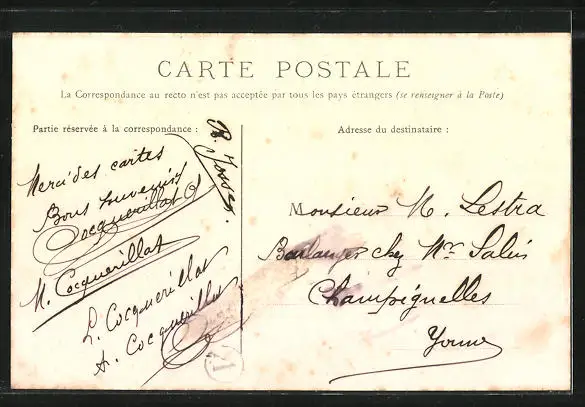 CARTE POSTALE
La Correspondance au recto n'est pas acceptée par tous les pays étrangers (se renseigner à la Poste)
Partie réservée à la correspondance :
Adresse du destinataire :
R. Josses.
Merci des cartes
Bons souvenirs
Cocquerillat
M. Cocquerillat
L. Cocquerillat
A. Cocquerillat
Monsieur M. Lestra
Boulanger chez Mr Salin
Champignelles
Yonne